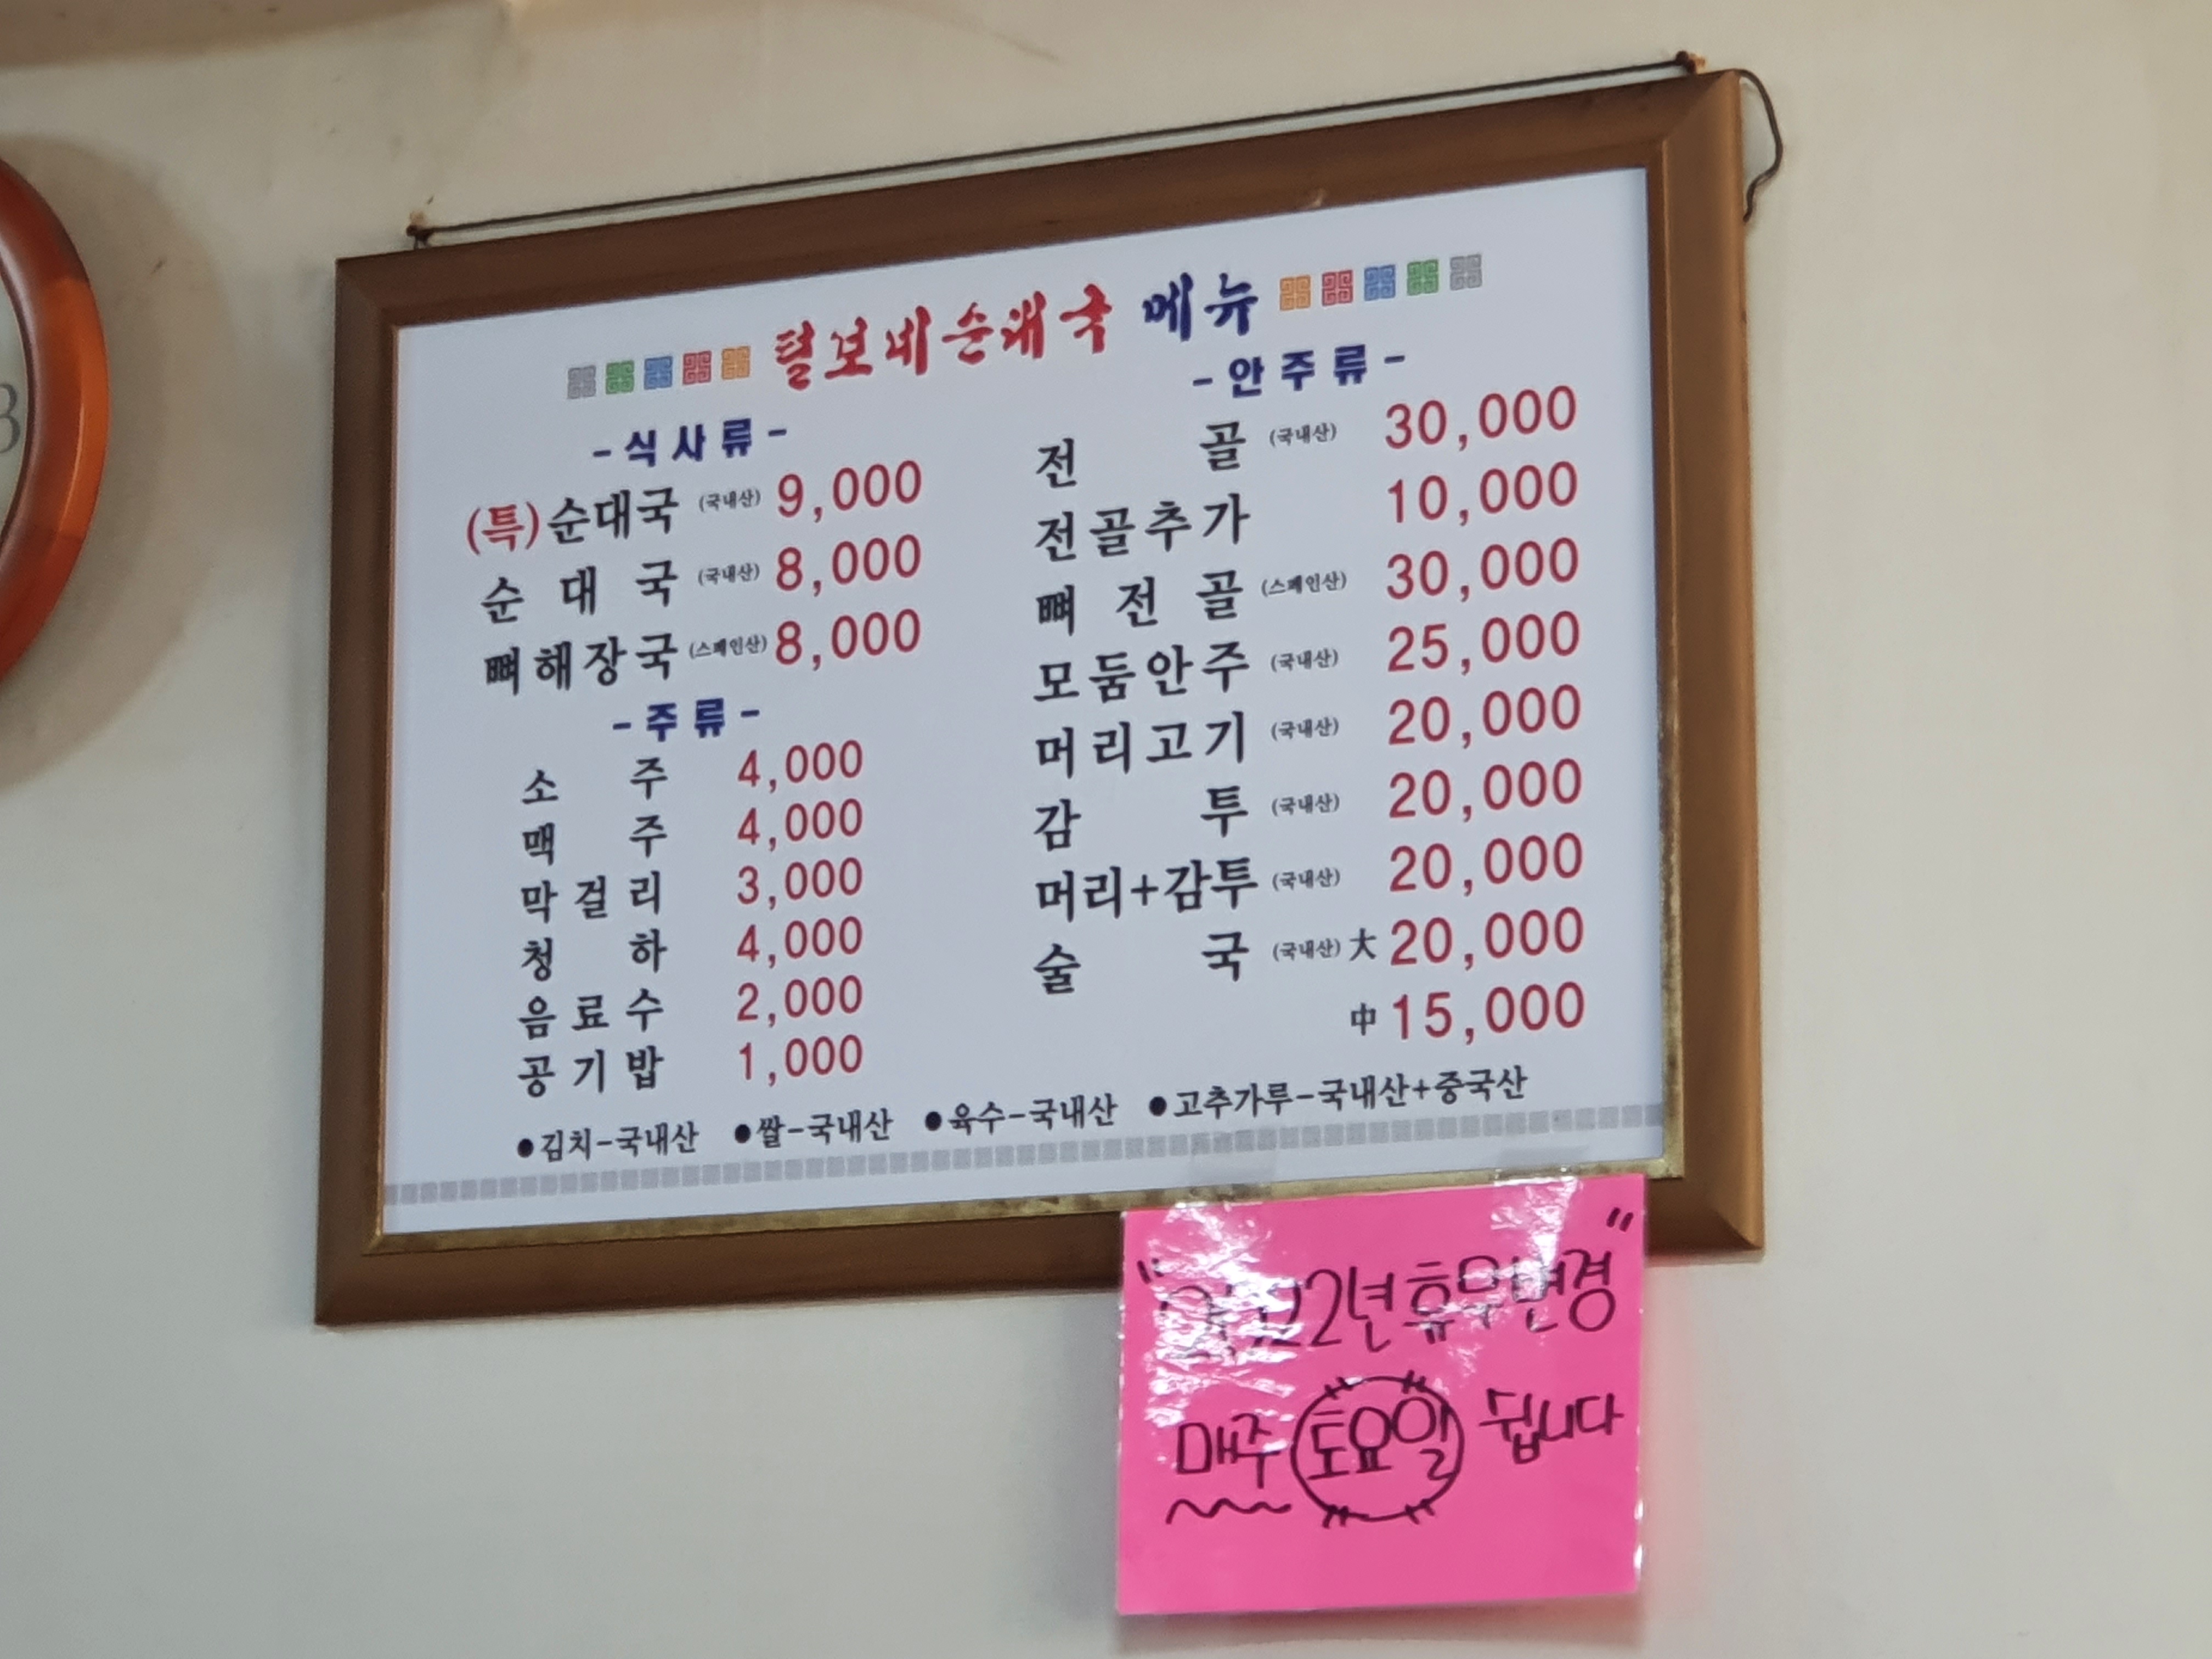 털보네순대국 메뉴
-식사류-
(특)순대국 (국내산) 9,000
순대국 (국내산) 8,000
뼈해장국 (스페인산) 8,000
-주류-
소주 4,000
맥주 4,000
막걸리 3,000
청하 4,000
음료수 2,000
공기밥 1,000
-안주류-
전골 (국내산) 30,000
전골추가 10,000
뼈전골 (스페인산) 30,000
모둠안주 (국내산) 25,000
머리고기 (국내산) 20,000
감투 (국내산) 20,000
머리+감투 (국내산) 20,000
술국 (국내산) 大 20,000
中 15,000
●김치-국내산 ●쌀-국내산 ●육수-국내산 ●고추가루-국내산+중국산
"2022년 휴무변경"
매주 토요일 쉽니다